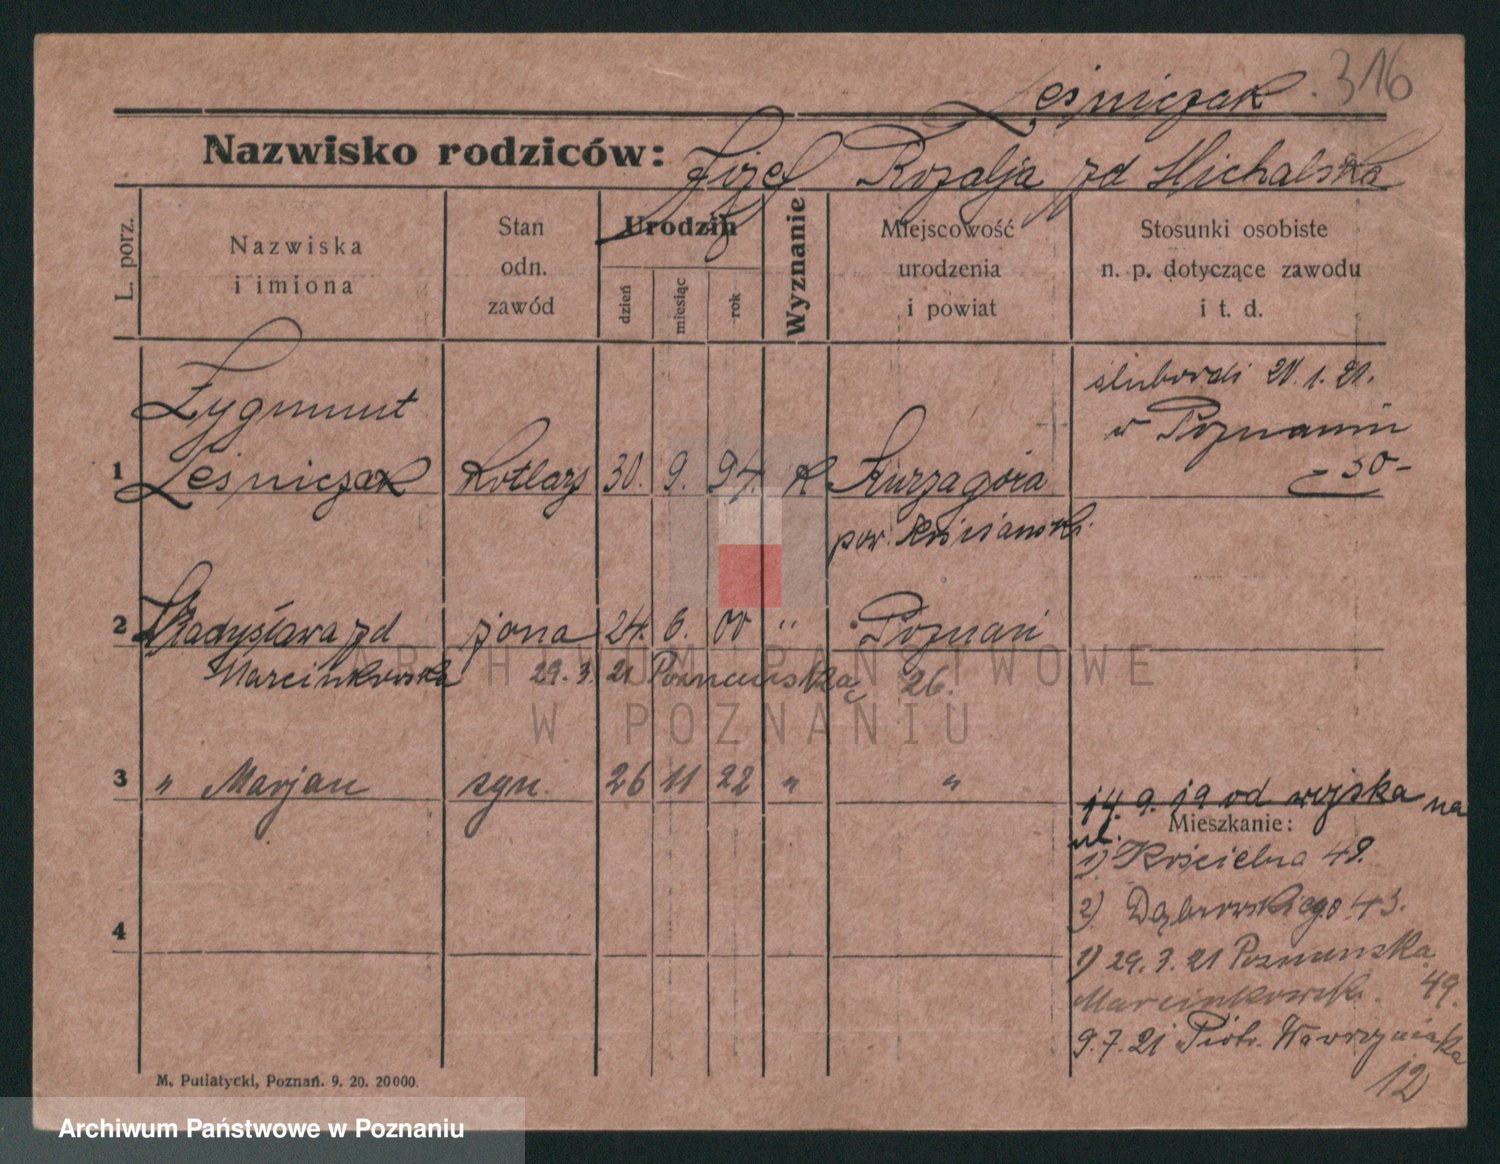 Leśniczak . 316
Nazwisko rodziców: Józef Rozalja zd Michalska
L. porz.
Nazwiska i imiona
Stan odn. zawód
Urodzin
dzień
miesiąc
rok
Wyznanie
Miejscowość urodzenia i powiat
Stosunki osobiste n. p. dotyczące zawodu i t. d.
Zygmunt
1 Leśniczak Kotlarz 30. 9. 94. K Kurzagóra
pow. Kościański.
w Poznaniu
- 30 -
2 Władysława zd żona 24. 6. 00 " Poznań
Marcinkowska 29. 3. 21 Poznańska 26.
3 " Marjan syn. 26 11 22 " "
14. 9. 19 od wojska na
ul.
Mieszkanie:
1) Kościelna 48.
2) Dąbrowskiego 43.
1) 29. 3. 21 Poznańska
Marcinkowsk. 49.
9. 7. 21 Piotr. Wawrzyniaka
12
4
M. Putiatycki, Poznań. 9. 20. 20000.
ARCHIWUM PAŃSTWOWE
W POZNANIU
Archiwum Państwowe w Poznaniu